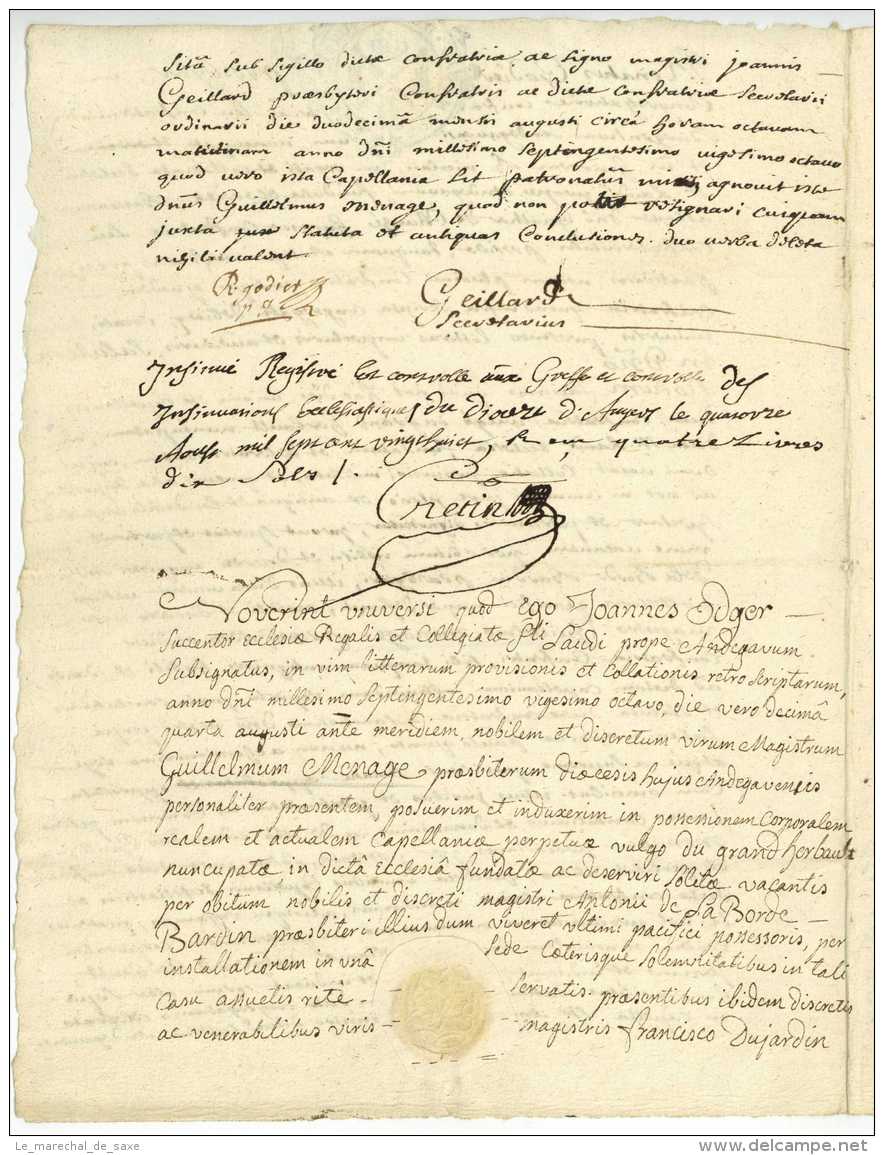 sitâ sub sigillo dictæ confratriæ ac signo magistri joannis
Geillard præsbyteri Confratris ac dictæ confratriæ Secretarii
ordinarii die duodecimâ mensis augusti circâ horam octavam
matutinam anno dñi millesimo septingentesimo vigesimo octavo
quod vero ista Capellania sit patronatus agnovit iste
dnus Guillelmus menage, quod non resignari cuiquam
juxta statuta et antiquas Conclusiones. duo verba deleta
nihil valent
R. godier
Geillard
Secretarius
Insinué Registré Et controllé aux Greffe et controlle des
Insinuations Ecclesiastiques du diocèze d'Angers le quatorze
Aoust mil sept cent vingt huict, R quatre Livres
dix sols /.
Cretin
Noverint universi quod ego Joannes Odger
succentor Ecclesiæ Regalis et Collegiatæ Sti Laudi prope Andegavum
subsignatus, in vim litterarum provisionis et Collationis retro scriptarum,
anno dñi millesimo septingentesimo vigesimo octavo, die vero decimâ
quarta augusti ante meridiem, nobilem et discretum virum Magistrum
Guillelmum Menage, præsbiterum diæcesis hujus Andegavensis
personaliter præsentem, posuerim et induxerim in possessionem corporalem
realem et actualem Capellaniæ perpetuæ vulgo du grand herbault
nuncupatæ in dictâ Ecclesiâ fundatæ ac deserviri solitæ vacantis
per obitum nobilis et discreti magistri Antonii de La Borde
Bardin præsbiteri illius dum viveret ultimi pacifici possessoris, per
installationem in unâ sede cæterisque solemnitatibus in tali
casu assuetis ritè servatis. præsentibus ibidem discretis
ac venerabilibus viris magistris Francisco Dujardin
Le_marechal_de_saxe
delcampe.net